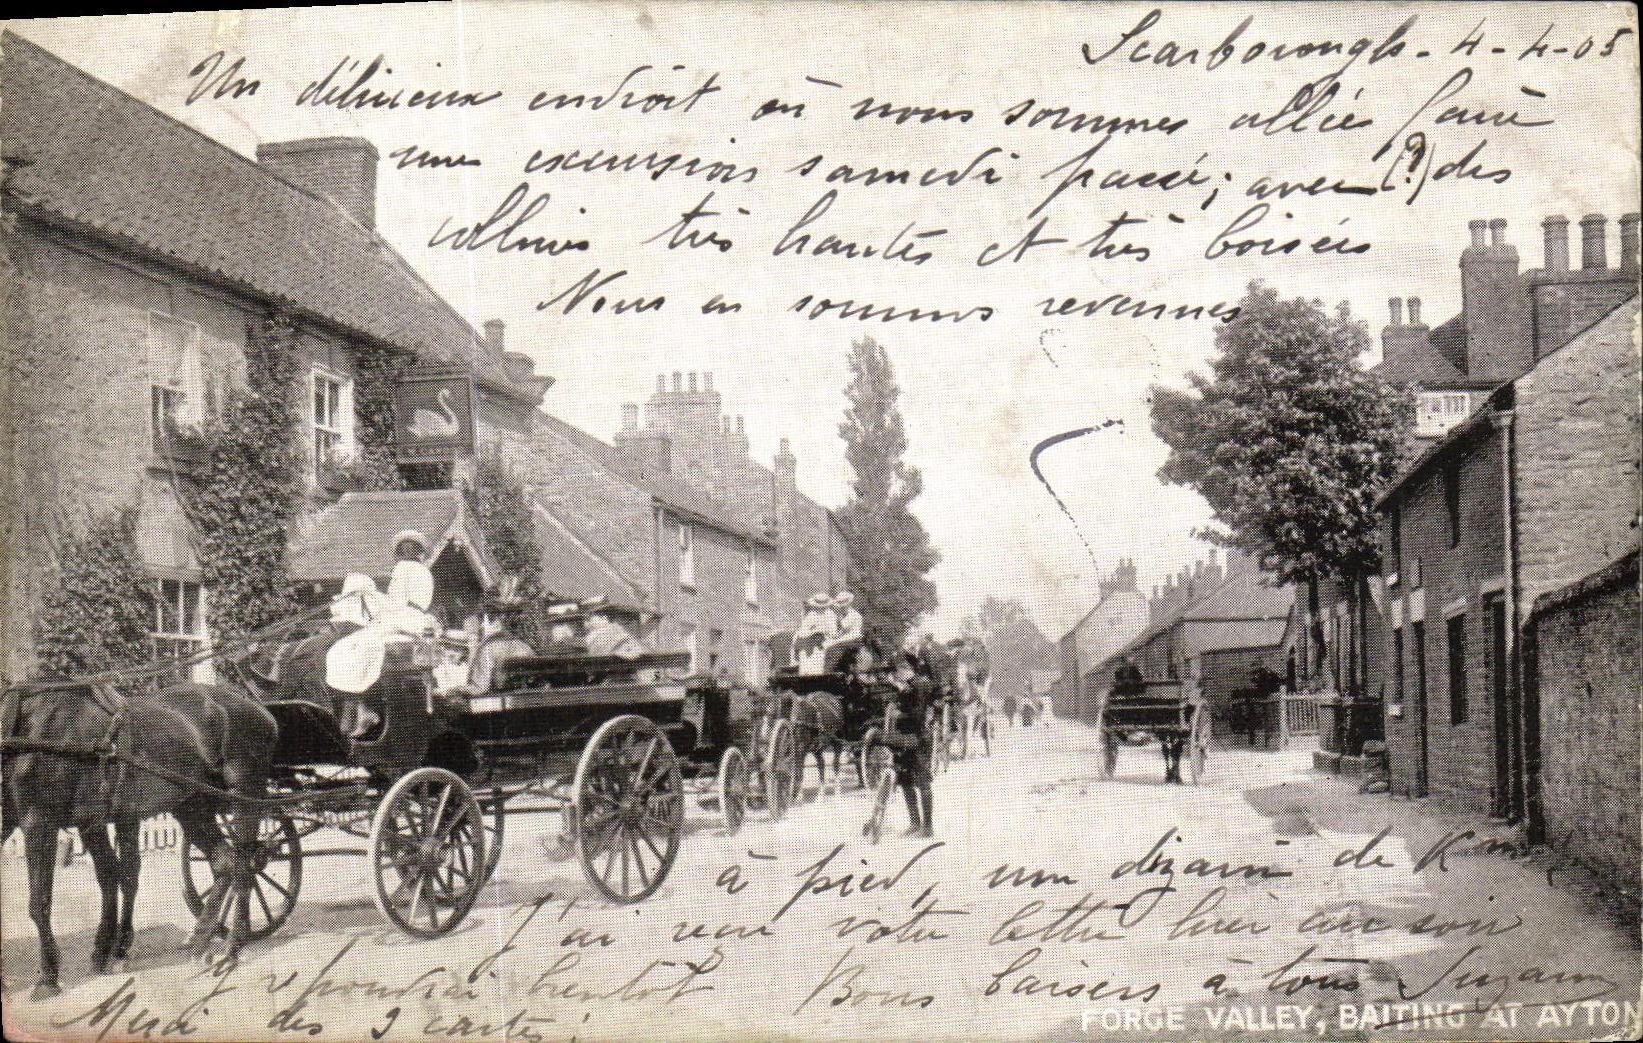 Scarborough - 4 - 4 - 05
Un délicieux endroit où nous sommes allées faire
une excursion samedi passé; avec (?) des
collines très hautes et très boisées
Nous en sommes revenues
à pied, une dizaine de Km
J'ai reçu votre lettre hier au soir
y répondrai bientôt Bons baisers à tous Suzanne
Merci des 2 cartes!
FORGE VALLEY, BAITING AT AYTON